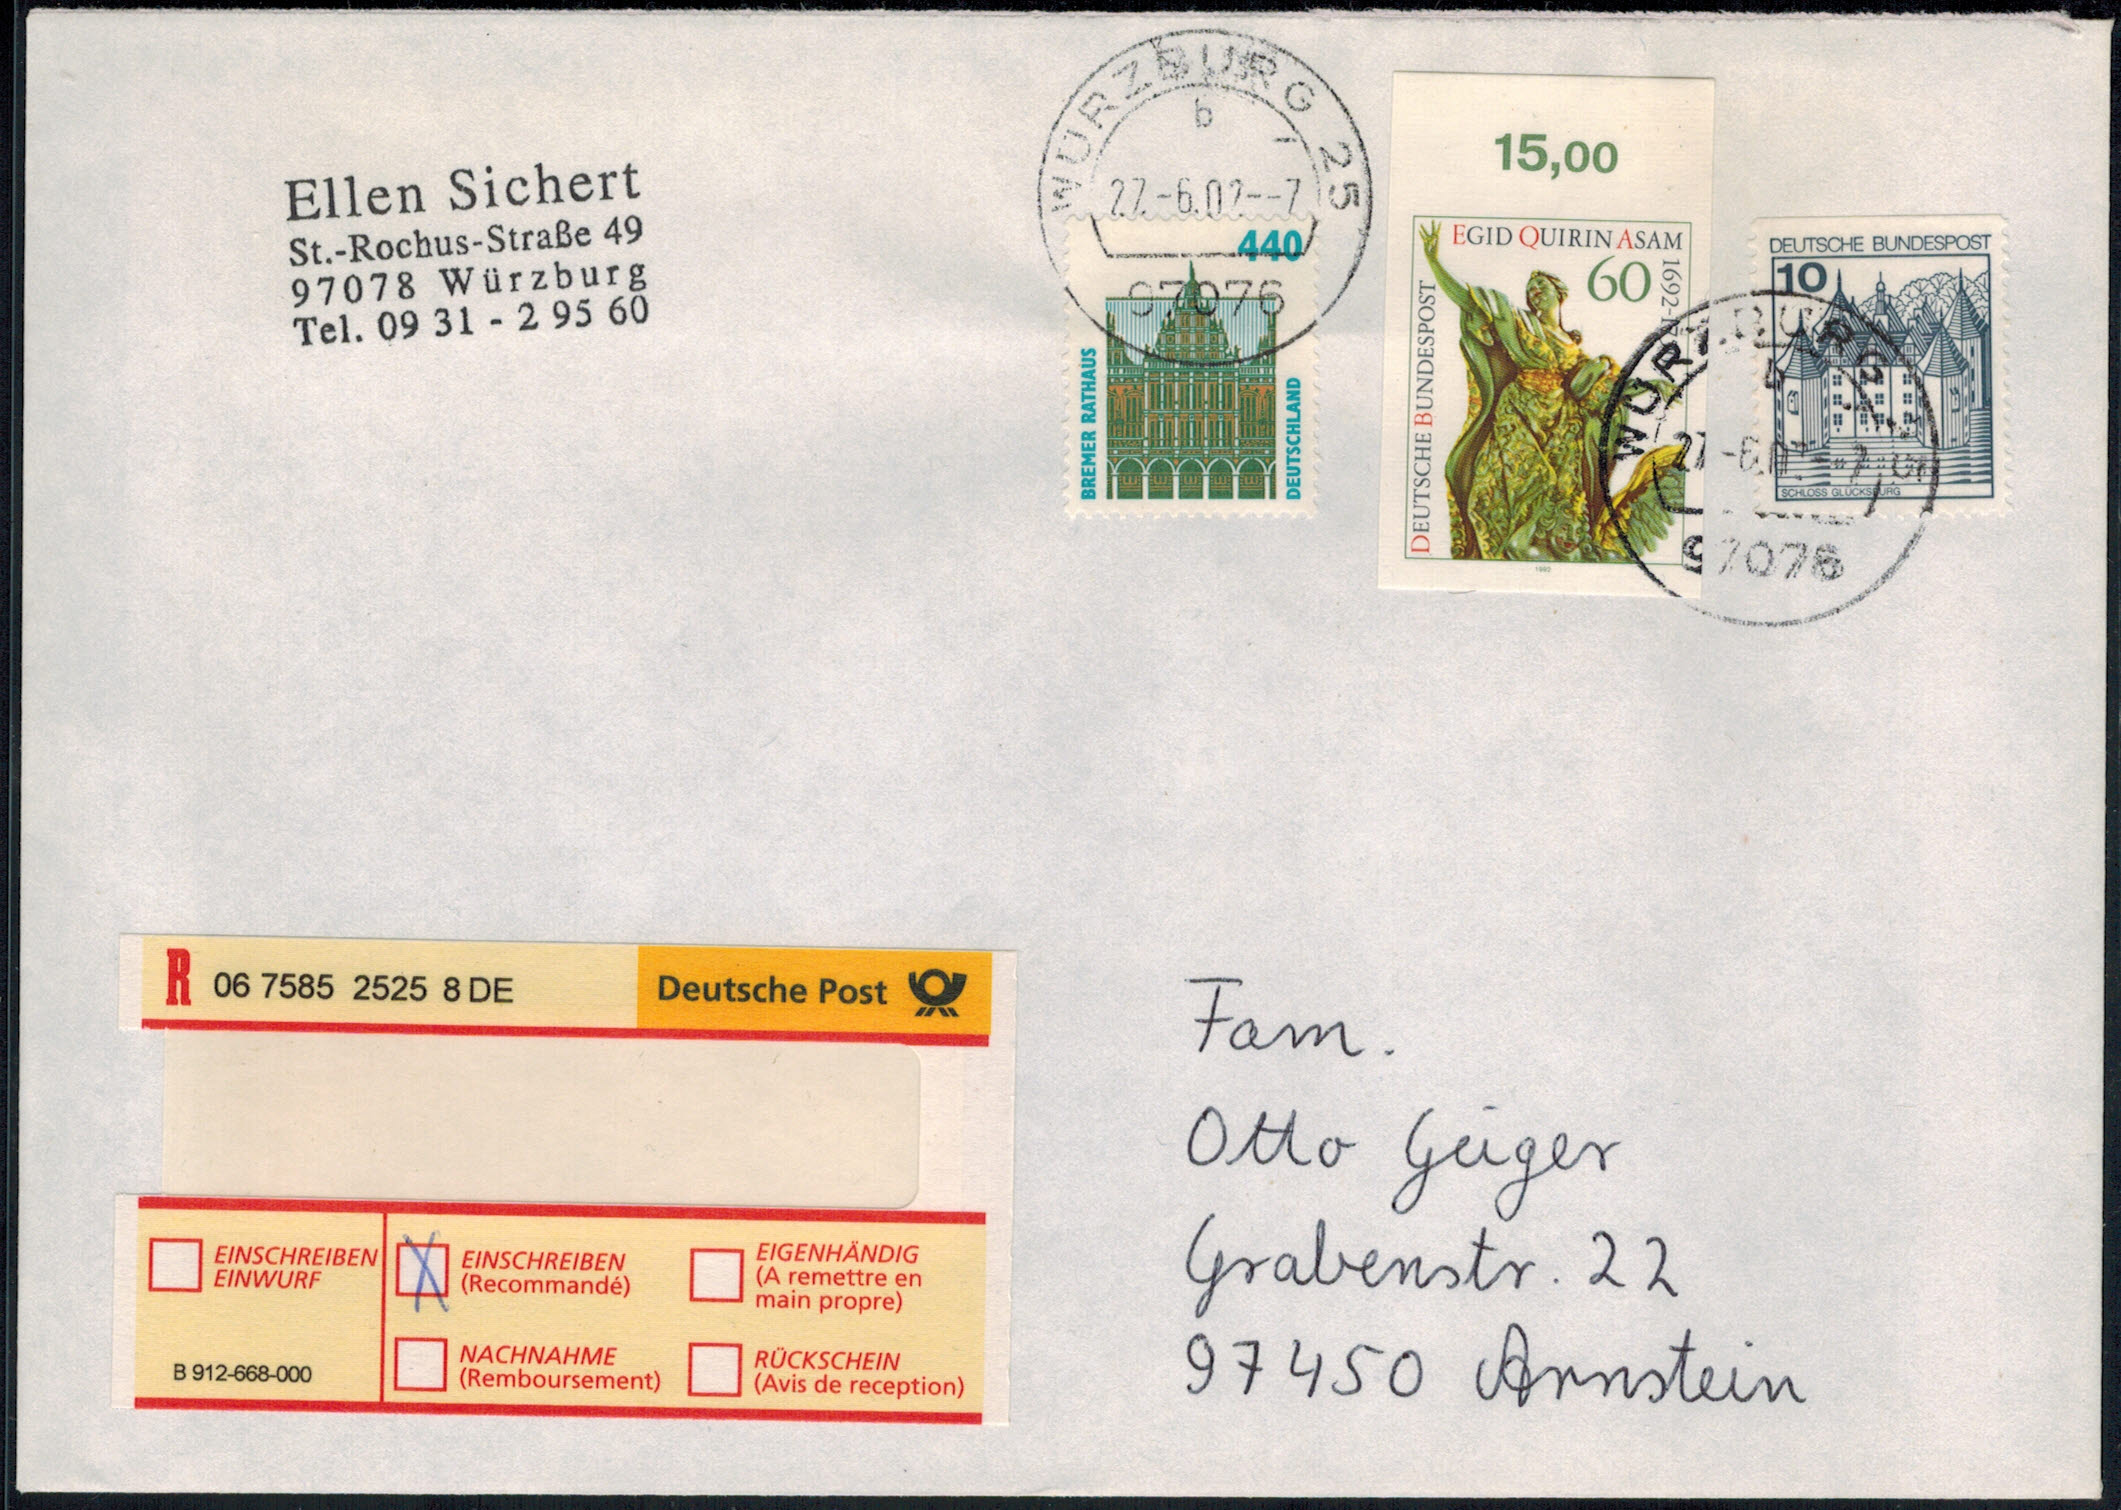 Ellen Sichert
St.-Rochus-Straße 49
97078 Würzburg
Tel. 09 31 - 2 95 60
WÜRZBURG 25
b
27.-6.02--7
97076
440
BREMER RATHAUS
DEUTSCHLAND
15,00
EGID QUIRIN ASAM
60
DEUTSCHE BUNDESPOST
1992
DEUTSCHE BUNDESPOST
10
SCHLOSS GLÜCKSBURG
WÜRZBURG
97076
R 06 7585 2525 8 DE
Deutsche Post
EINSCHREIBEN
EINWURF
B 912-668-000
EINSCHREIBEN
(Recommandé)
EIGENHÄNDIG
(A remettre en
main propre)
NACHNAHME
(Remboursement)
RÜCKSCHEIN
(Avis de reception)
Fam.
Otto Geiger
Grabenstr. 22
97450 Arnstein